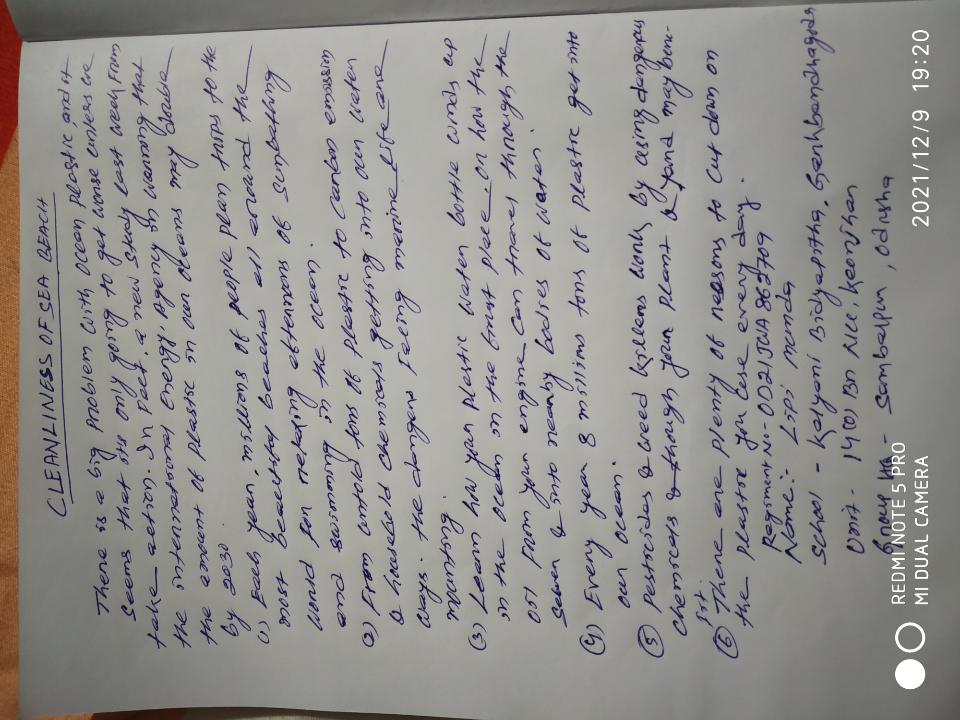 CLEANLINESS OF SEA BEACH
There is a big problem with ocean plastic and it
seems that its only going to get worse unless we
take action. In fact, a new study last week from
the international energy, Agency in warning that
the amount of plastic in our oceans may double
by 2030.
(1) Each year, millions of people plan trips to the
most beautiful beaches all around the
world for relaxing afternoons of sunbathing
and swimming in the ocean.
(2) From untold tons of plastic to carbon emission
& household chemicals getting into our water
ways. the dangers facing marine life are
mounting.
(3) Learn how your plastic water bottle winds up
in the ocean in the first place, or how the
oil from your engine can travel through the
sewer & into nearby bodies of water.
(4) Every year 8 millions tons of plastic get into
our ocean.
(5) Pesticides & weed killers work by using dangerous
chemicals & though your plant & yand may bene-
fit.
(6) There are plenty of reasons to cut down on
the plastic you use every day.
Regiment No- OD21JWA862709
Name:- Lipi munda
School - Kalyani Bidyapitha, Gankbandhagoda
Unit - 14(O) Bn NCC, Keonjhar
Group HQ - Sambalpur, Odisha
REDMI NOTE 5 PRO
MI DUAL CAMERA
2021/12/9 19:20